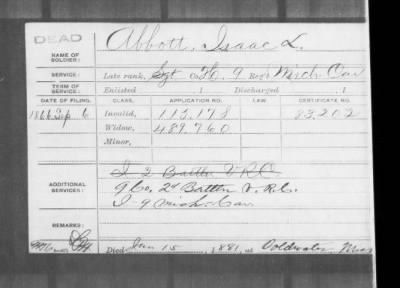 DEAD
NAME OF SOLDIER: Abbott, Isaac L.
SERVICE: Late rank, Sgt Co. H. 9 Reg't Mich Cav
TERM OF SERVICE: Enlisted 1 Discharged 1
DATE OF FILING. CLASS. APPLICATION NO. LAW. CERTIFICATE NO.
1866 Sep 6 Invalid, 113,178 83,202
Widow, 489,760
Minor,
I 2 Battn V.R.C.
ADDITIONAL SERVICES: 9 Co, 2d Battn V.R.C.
I 9 Mich. Cav
REMARKS:
Died 15, 1881, at Coldwater, Mich